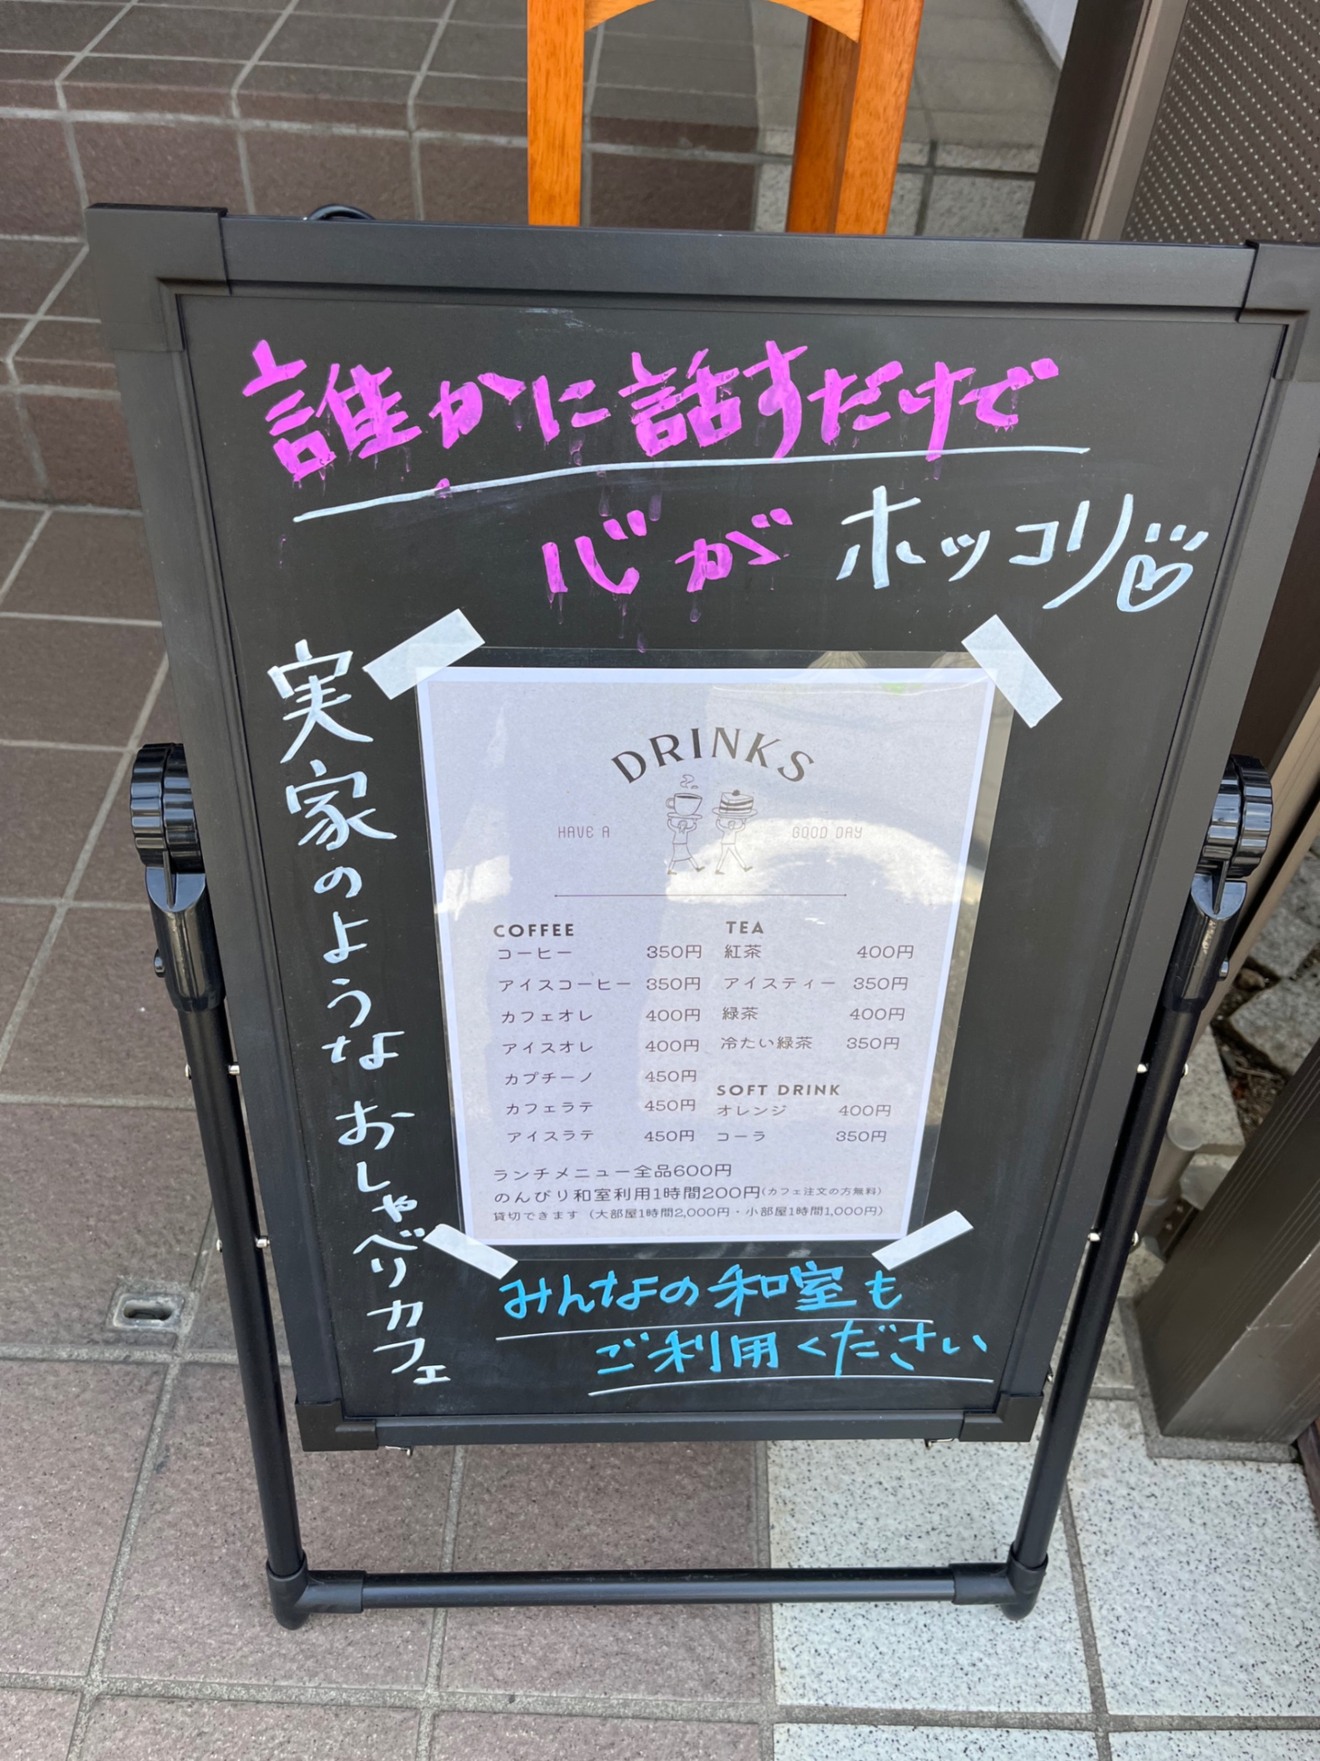 誰かに話すだけで
心がホッコリ
実家のような おしゃべりカフェ
DRINKS
HAVE A GOOD DAY
COFFEE
コーヒー 350円
アイスコーヒー 350円
カフェオレ 400円
アイスオレ 400円
カプチーノ 450円
カフェラテ 450円
アイスラテ 450円
TEA
紅茶 400円
アイスティー 350円
緑茶 400円
冷たい緑茶 350円
SOFT DRINK
オレンジ 400円
コーラ 350円
ランチメニュー全品600円
のんびり和室利用1時間200円(カフェ注文の方無料)
貸切できます（大部屋1時間2,000円・小部屋1時間1,000円）
みんなの和室も
ご利用ください